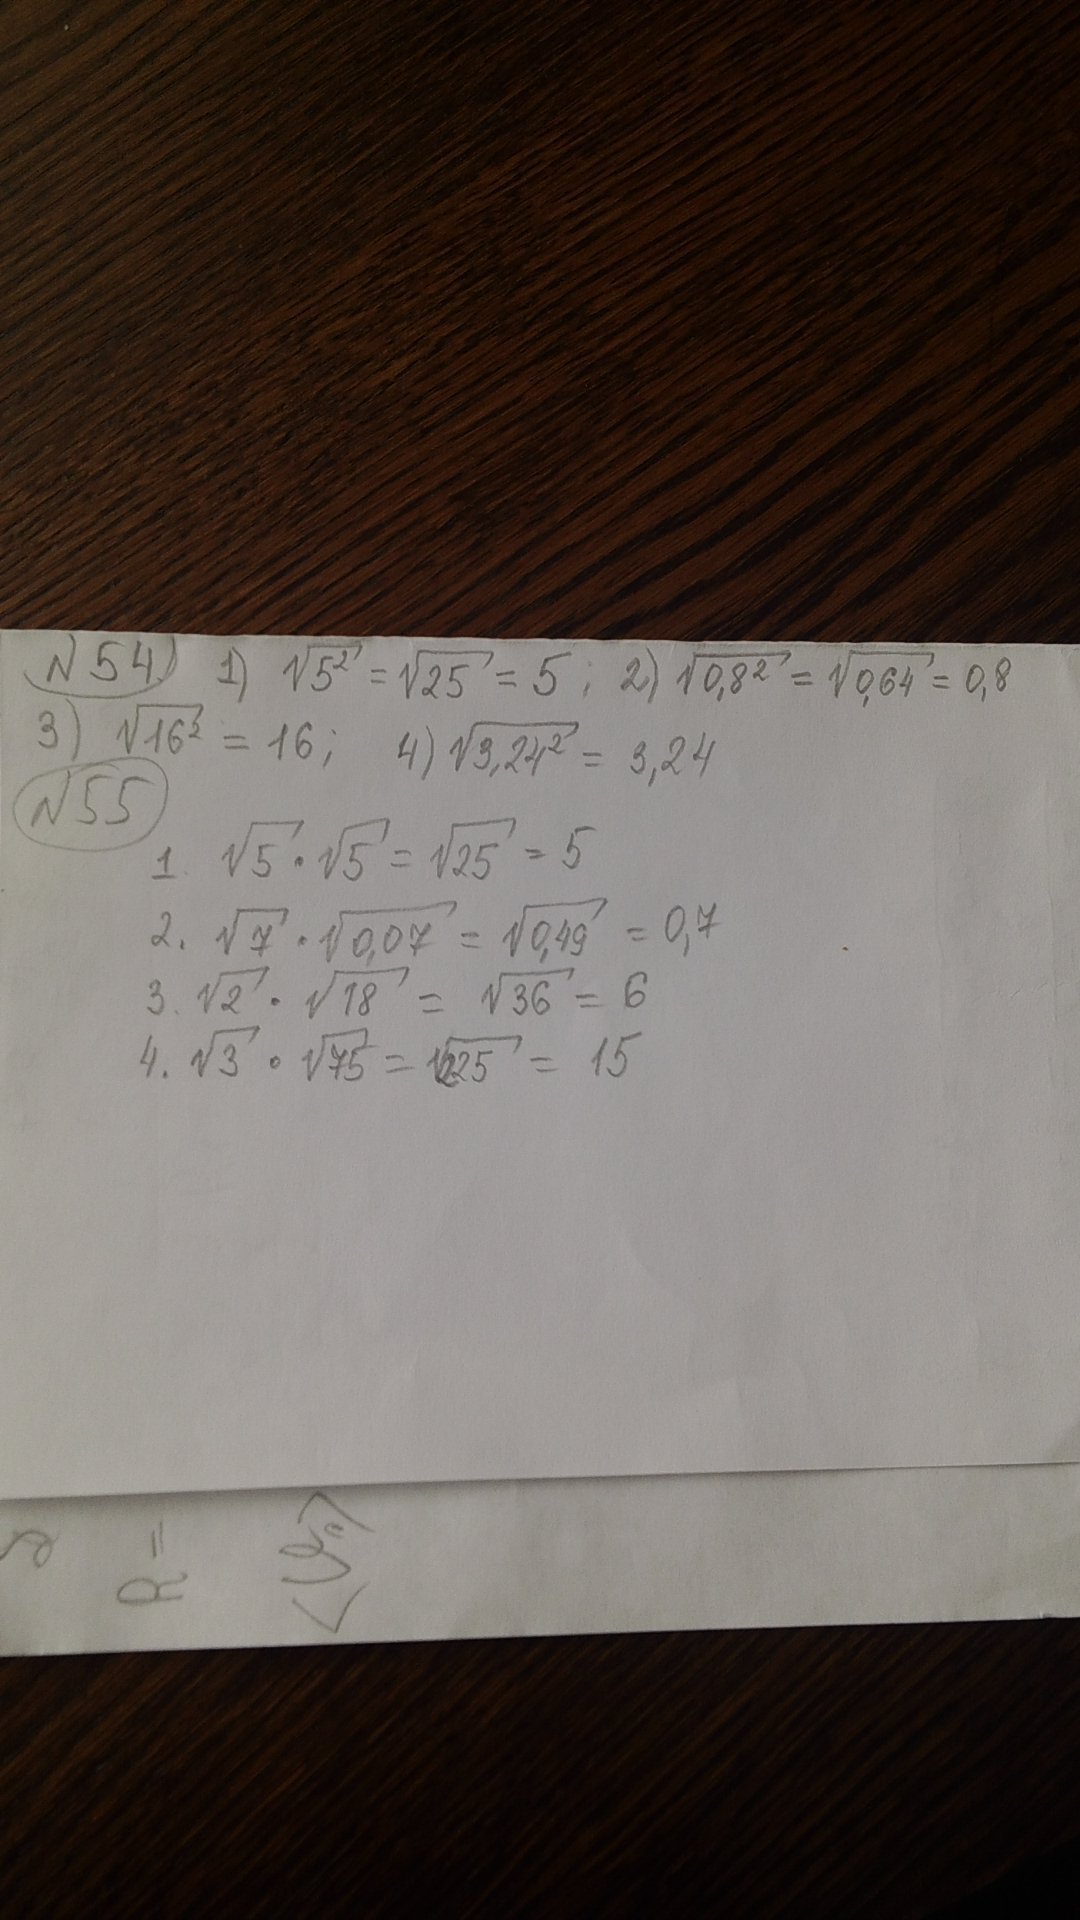 N54) 1) √5² = √25 = 5; 2) √0,8² = √0,64 = 0,8
3) √16² = 16; 4) √3,24² = 3,24
N55
1. √5 · √5 = √25 = 5
2. √7 · √0,07 = √0,49 = 0,7
3. √2 · √18 = √36 = 6
4. √3 · √75 = √225 = 15
R=